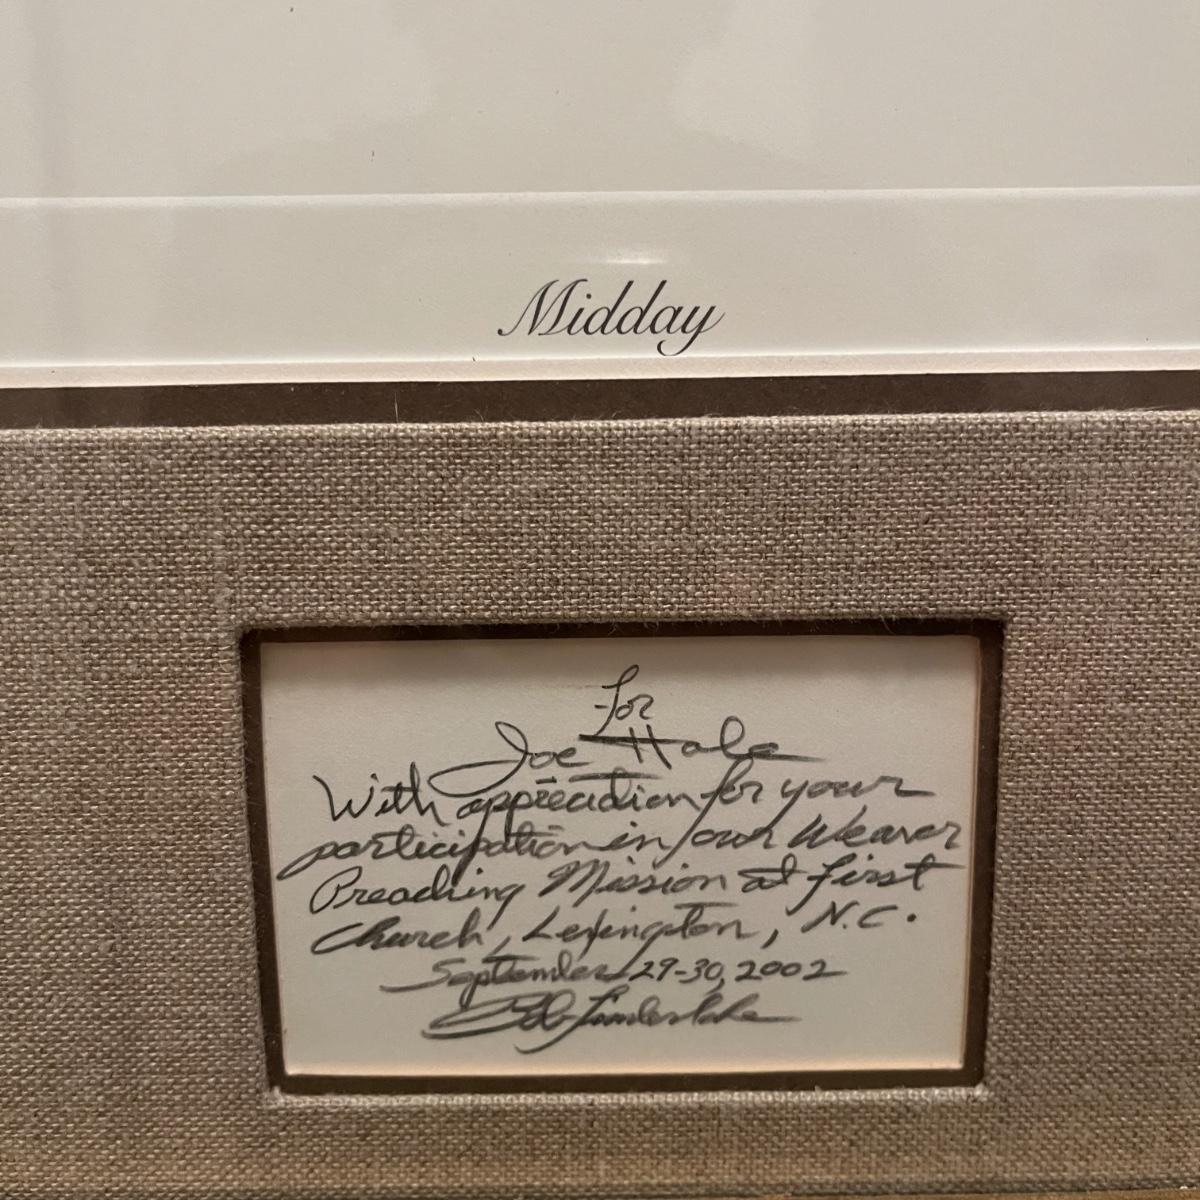 Midday
for
Joe Hale
With appreciation for your
participation in our Weaver
Preaching Mission at First
Church, Lexington, N.C.
September 29-30, 2002
Bob